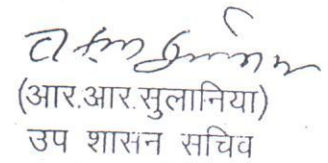 (आर.आर.सुलानिया)
उप शासन सचिव